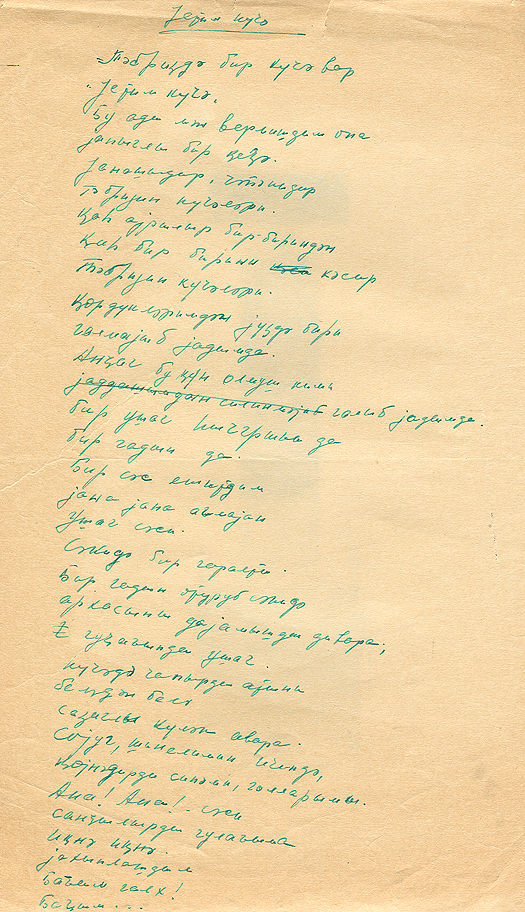 Јетим күчә
Тәбриздә бир күчә вар
Јетим күчә.
Бу ады мән вермишдим она
јанығлы бир кечә.
Јанашыдыр, чатышыдыр
Тәбризин күчәләри.
Ҝаһ ајрылыр бир-бириндән
Ҝаһ бир бирини кәсир
Тәбризин күчәләри.
Ҝөрдүкләримдән јүздә бири
галмајыб јадымда.
Анҹаг бу ҝүн олмуш кими
галыб јадымда.
бир ушаг һычгыртысы да
бир гадын да.
Бир сәс ешитдим
јана јана ағлајан
ушаг сәси.
Сәкидә бир гаралты.
Бир гадын отуруб сәкидә
архасыны дајамышды дивара,
гуҹағында ушаг.
күчәдә чапырды атыны
белдән белә
сазаглы күләк авара.
Сојуг, шинелимин ичиндә,
ҝөјнәдирди синәми, голларымы.
Ана! Ана! - сәси
санҹылырды гулағыма
ијнә ијнә.
јахынлашдым
Баҹым галх!
Баҹым...